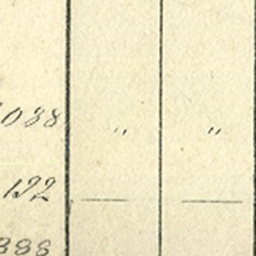 1038 " "
132 — —
388